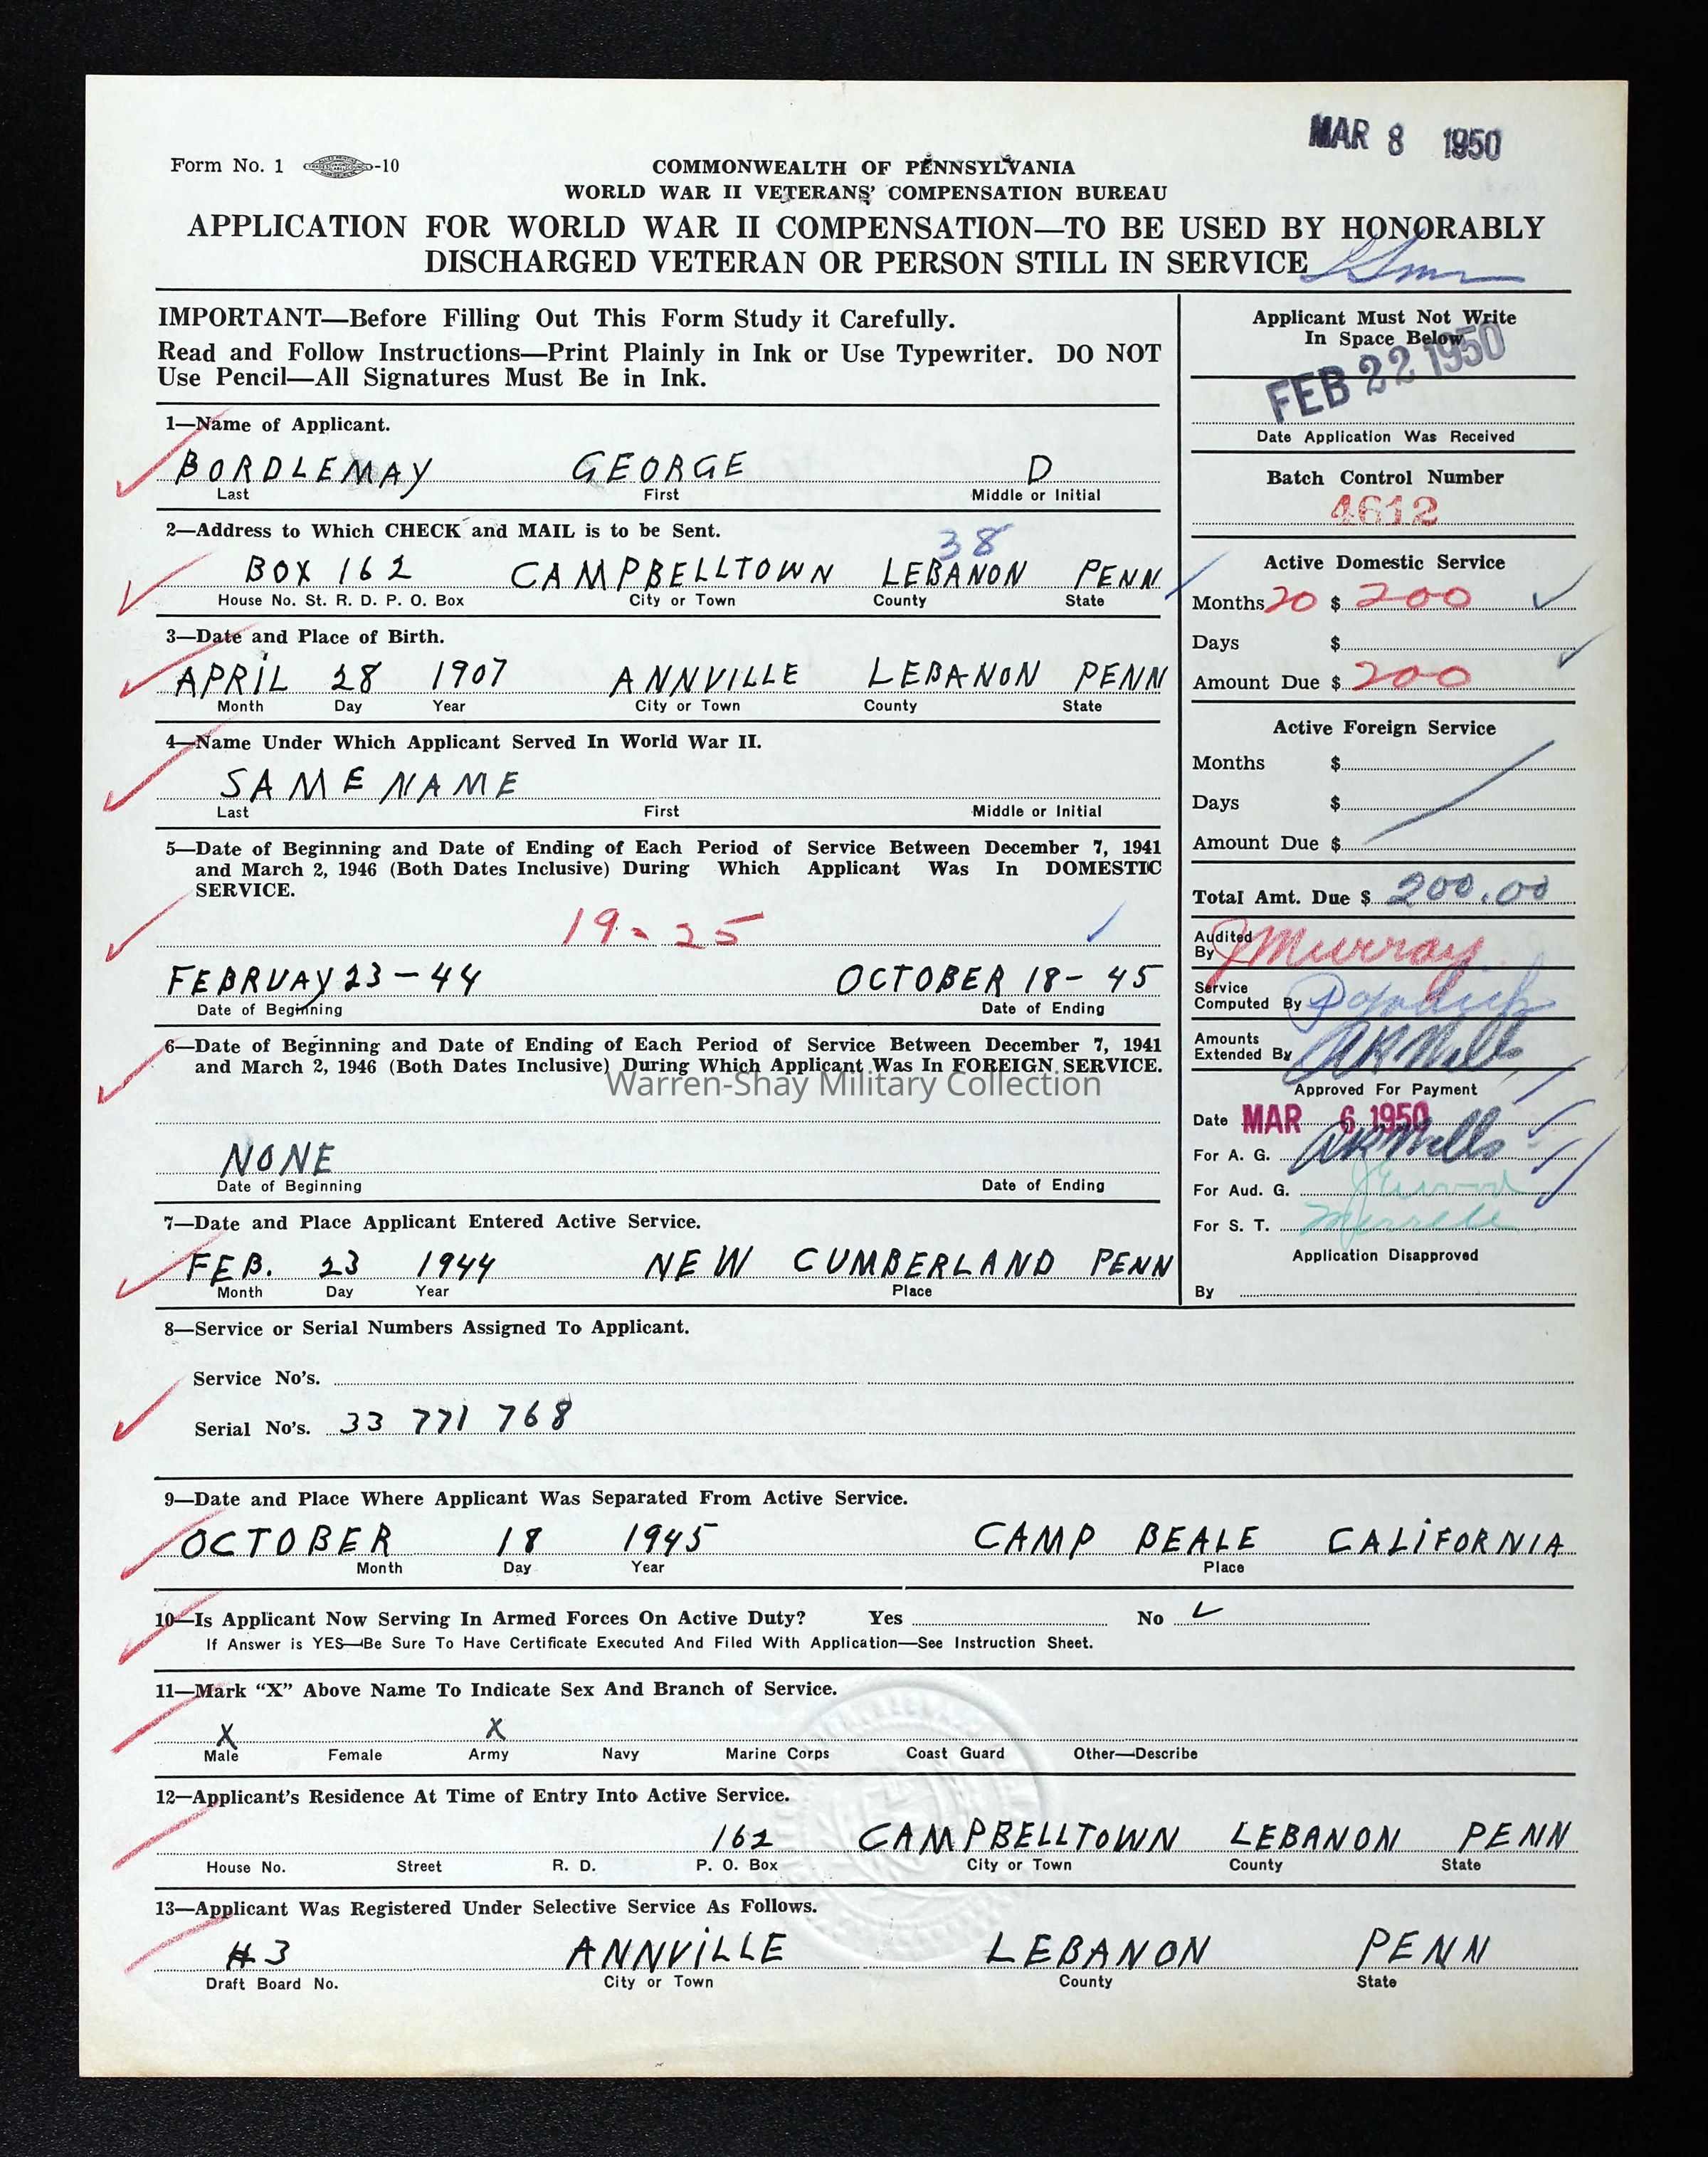 MAR 8 1950
Form No. 1 -10
COMMONWEALTH OF PENNSYLVANIA
WORLD WAR II VETERANS' COMPENSATION BUREAU
APPLICATION FOR WORLD WAR II COMPENSATION—TO BE USED BY HONORABLY
DISCHARGED VETERAN OR PERSON STILL IN SERVICE
IMPORTANT—Before Filling Out This Form Study it Carefully.
Read and Follow Instructions—Print Plainly in Ink or Use Typewriter. DO NOT
Use Pencil—All Signatures Must Be in Ink.
1—Name of Applicant.
BORDLEMAY GEORGE D
Last First Middle or Initial
2—Address to Which CHECK and MAIL is to be Sent.
38
BOX 162 CAMPBELLTOWN LEBANON PENN
House No. St. R. D. P. O. Box City or Town County State
3—Date and Place of Birth.
APRIL 28 1907 ANNVILLE LEBANON PENN
Month Day Year City or Town County State
4—Name Under Which Applicant Served In World War II.
SAME NAME
Last First Middle or Initial
5—Date of Beginning and Date of Ending of Each Period of Service Between December 7, 1941
and March 2, 1946 (Both Dates Inclusive) During Which Applicant Was In DOMESTIC
SERVICE.
19-25
FEBRUAY 23-44 OCTOBER 18-45
Date of Beginning Date of Ending
6—Date of Beginning and Date of Ending of Each Period of Service Between December 7, 1941
and March 2, 1946 (Both Dates Inclusive) During Which Applicant Was In FOREIGN SERVICE.
Warren-Shay Military Collection
NONE
Date of Beginning Date of Ending
7—Date and Place Applicant Entered Active Service.
FEB. 23 1944 NEW CUMBERLAND PENN
Month Day Year Place
Applicant Must Not Write
In Space Below
FEB 22 1950
Date Application Was Received
Batch Control Number
4612
Active Domestic Service
Months 20 $ 200
Days $
Amount Due $ 200
Active Foreign Service
Months $
Days $
Amount Due $
Total Amt. Due $ 200.00
Audited
By J Murray
Service
Computed By
Amounts
Extended By AR Mills
Approved For Payment
Date MAR 6 1950
For A. G. AR Mills
For Aud. G.
For S. T.
Application Disapproved
By
8—Service or Serial Numbers Assigned To Applicant.
Service No's.
Serial No's. 33 771 768
9—Date and Place Where Applicant Was Separated From Active Service.
OCTOBER 18 1945 CAMP BEALE CALIFORNIA
Month Day Year Place
10—Is Applicant Now Serving In Armed Forces On Active Duty? Yes No ✓
If Answer is YES—Be Sure To Have Certificate Executed And Filed With Application—See Instruction Sheet.
11—Mark "X" Above Name To Indicate Sex And Branch of Service.
X X
Male Female Army Navy Marine Corps Coast Guard Other—Describe
12—Applicant's Residence At Time of Entry Into Active Service.
162 CAMPBELLTOWN LEBANON PENN
House No. Street R. D. P. O. Box City or Town County State
13—Applicant Was Registered Under Selective Service As Follows.
#3 ANNVILLE LEBANON PENN
Draft Board No. City or Town County State